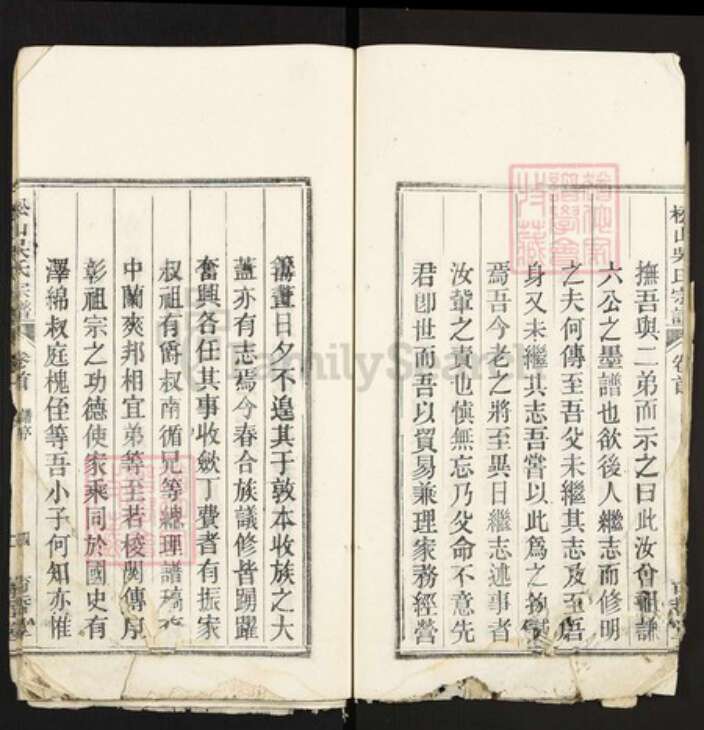 撫吾與二弟而示之曰此汝曾祖謙
六公之墨譜也欲後人繼志而修明
之夫何傳至吾父未繼其志及至吾
身又未繼其志吾嘗以此爲之抱
焉吾今老之將至異日繼志述事者
汝輩之責也慎無忘乃父命不意先
君卽世而吾以貿易兼理家務經營
松山吳氏宗譜 卷首
籌畫日夕不遑其于敦本收族之大
蓋亦有志焉今春合族議修皆踴躍
奮興各任其事收斂丁費者有振家
叔祖有爵叔南循兄等總理譜稿
中蘭爽邦相宜弟等至若梭閱傳序
彰祖宗之功德使家乘同於國史有
澤綿叔庭槐侄等吾小子何知亦惟
松山吳氏宗譜 卷首 譜序 四
FamilySearch